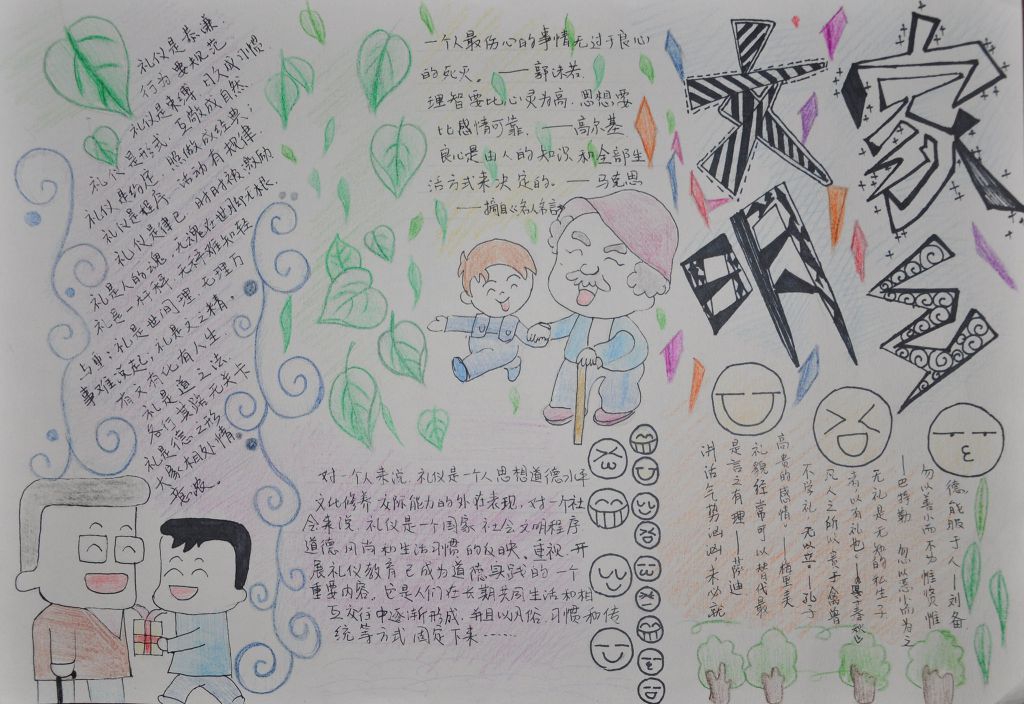 文
家
明
乡
礼仪是恭谦
行为要规范
礼仪是束缚 日久成习惯
礼仪是形式 互敬成自然
礼仪是约定 照做成经典;
礼仪是程序 活动有规律
礼仪是律己 时时被激励
礼是人的魂 无魂在世脚无根
礼是一杆秤 无秤难知轻
与重;礼是世间理 无理万
事难说起,礼是文之精。
有文有化有人生
礼是道之法
各行其路无关卡
礼是德之形
大家相处情
意浓。
一个人最伤心的事情无过于良心
的死灭。——郭沫若
理智要比心灵为高,思想要
比感情可靠。——高尔基
良心是由人的知识和全部生
活方式来决定的。——马克思
——摘自《名人名言》
对一个人来说,礼仪是一个人思想道德水平
文化修养 交际能力的外在表现,对一个社
会来说,礼仪是一个国家社会文明程序
道德风尚和生活习惯的反映。重视、开
展礼仪教育已成为道德实践的一个
重要内容。它是人们在长期共同生活和相
互交往中逐渐形成,并且以风俗、习惯和传
统等方式固定下来……
德能服于人——刘备
勿以善小而不为 惟贤惟
勿以恶小而为之
——巴特勒
无礼是无知的私生子
凡人之所以贵于禽兽
者以有礼也——晏子春秋
不学礼 无以立——孔子
高贵的感情——柏里美
礼貌经常可以替代最
是言之有理——萨迪
讲话气势汹汹,未必就